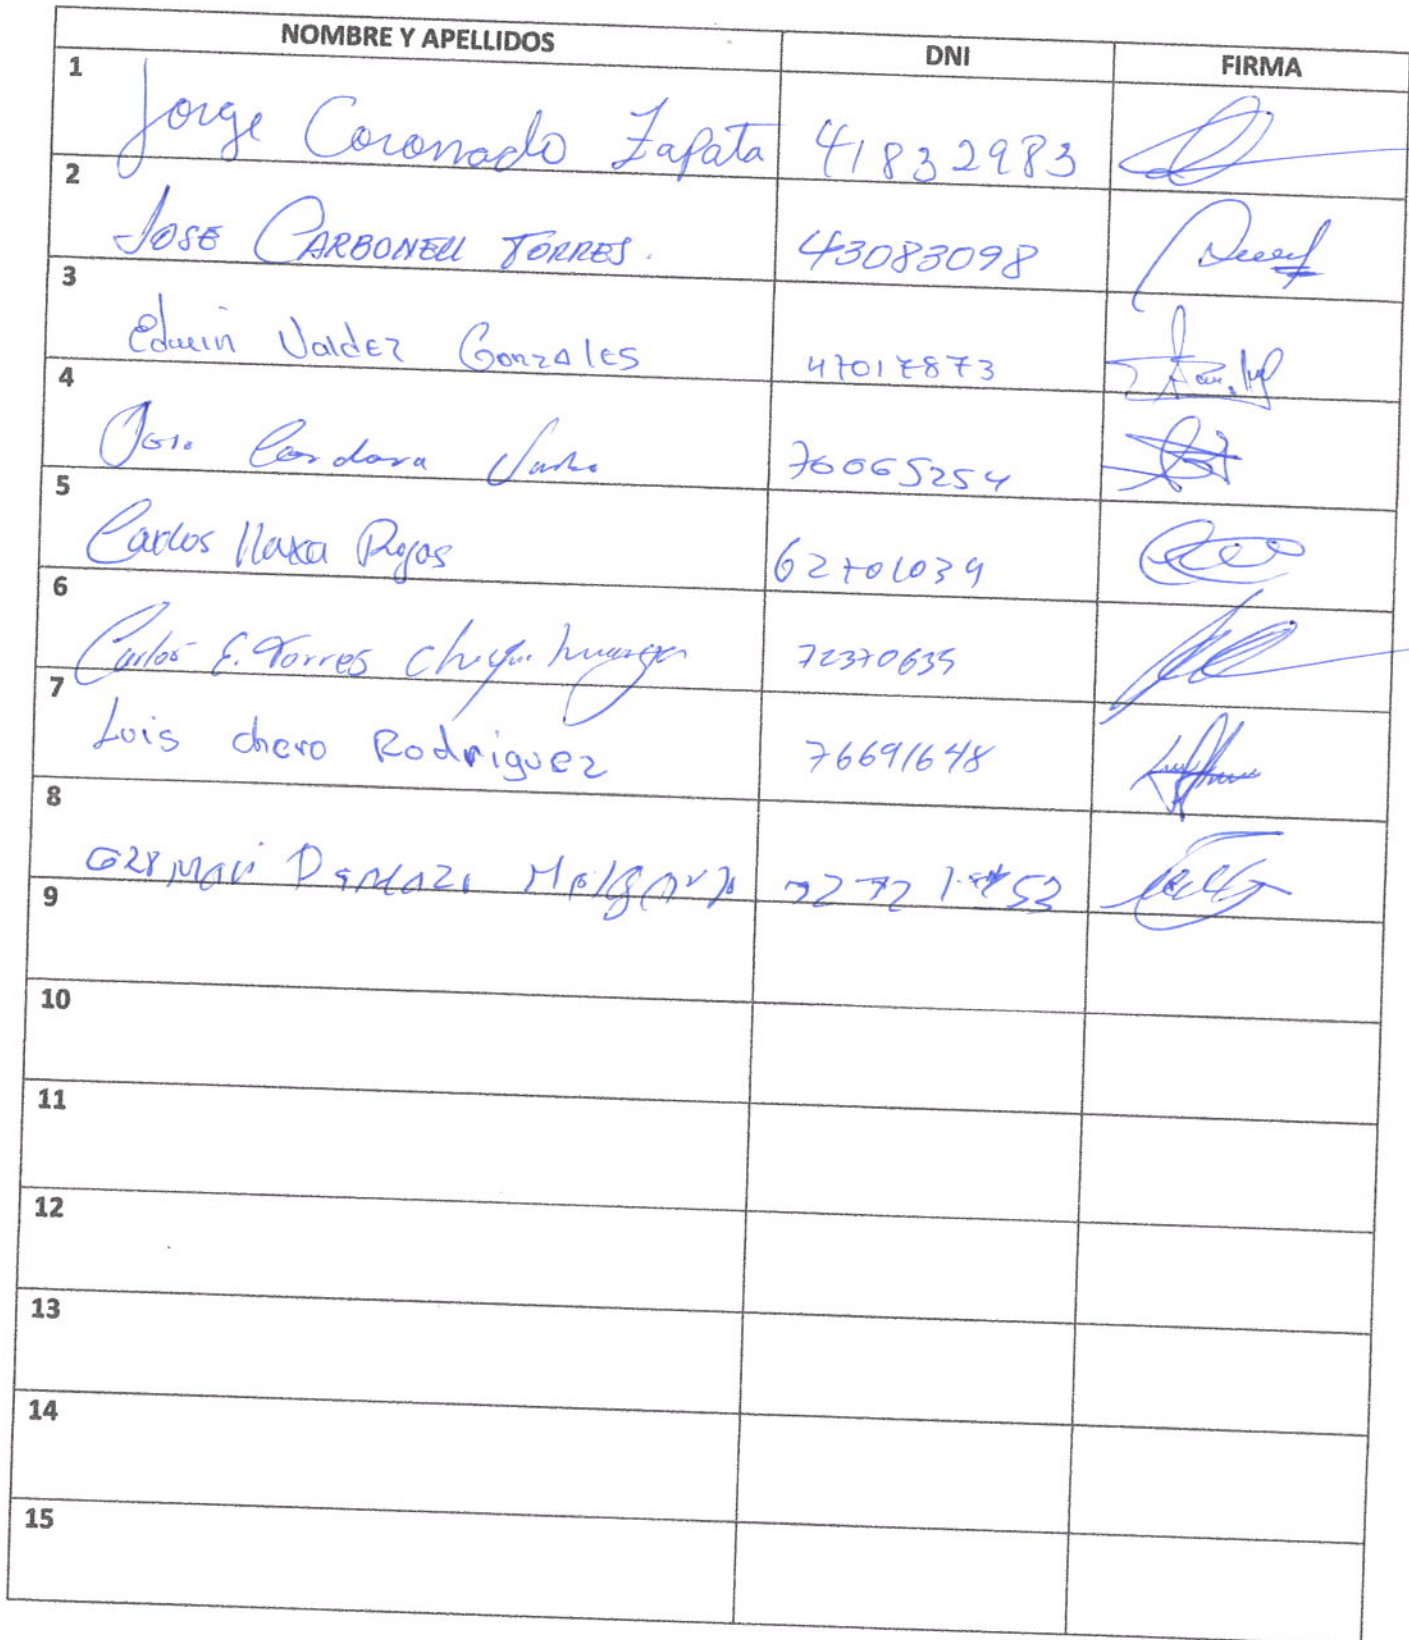 NOMBRE Y APELLIDOS DNI FIRMA
1 Jorge Coronado Zapata 41832983
2 JOSE CARBONELL TORRES. 43083098
3 Edwin Valdez Gonzales 47017873
4 Jose Cordova 76065254
5 Carlos Llaxa Rojas 62701039
6 Carlos E. Torres 72370635
7 Luis chero Rodriguez 76691648
8
9
10
11
12
13
14
15